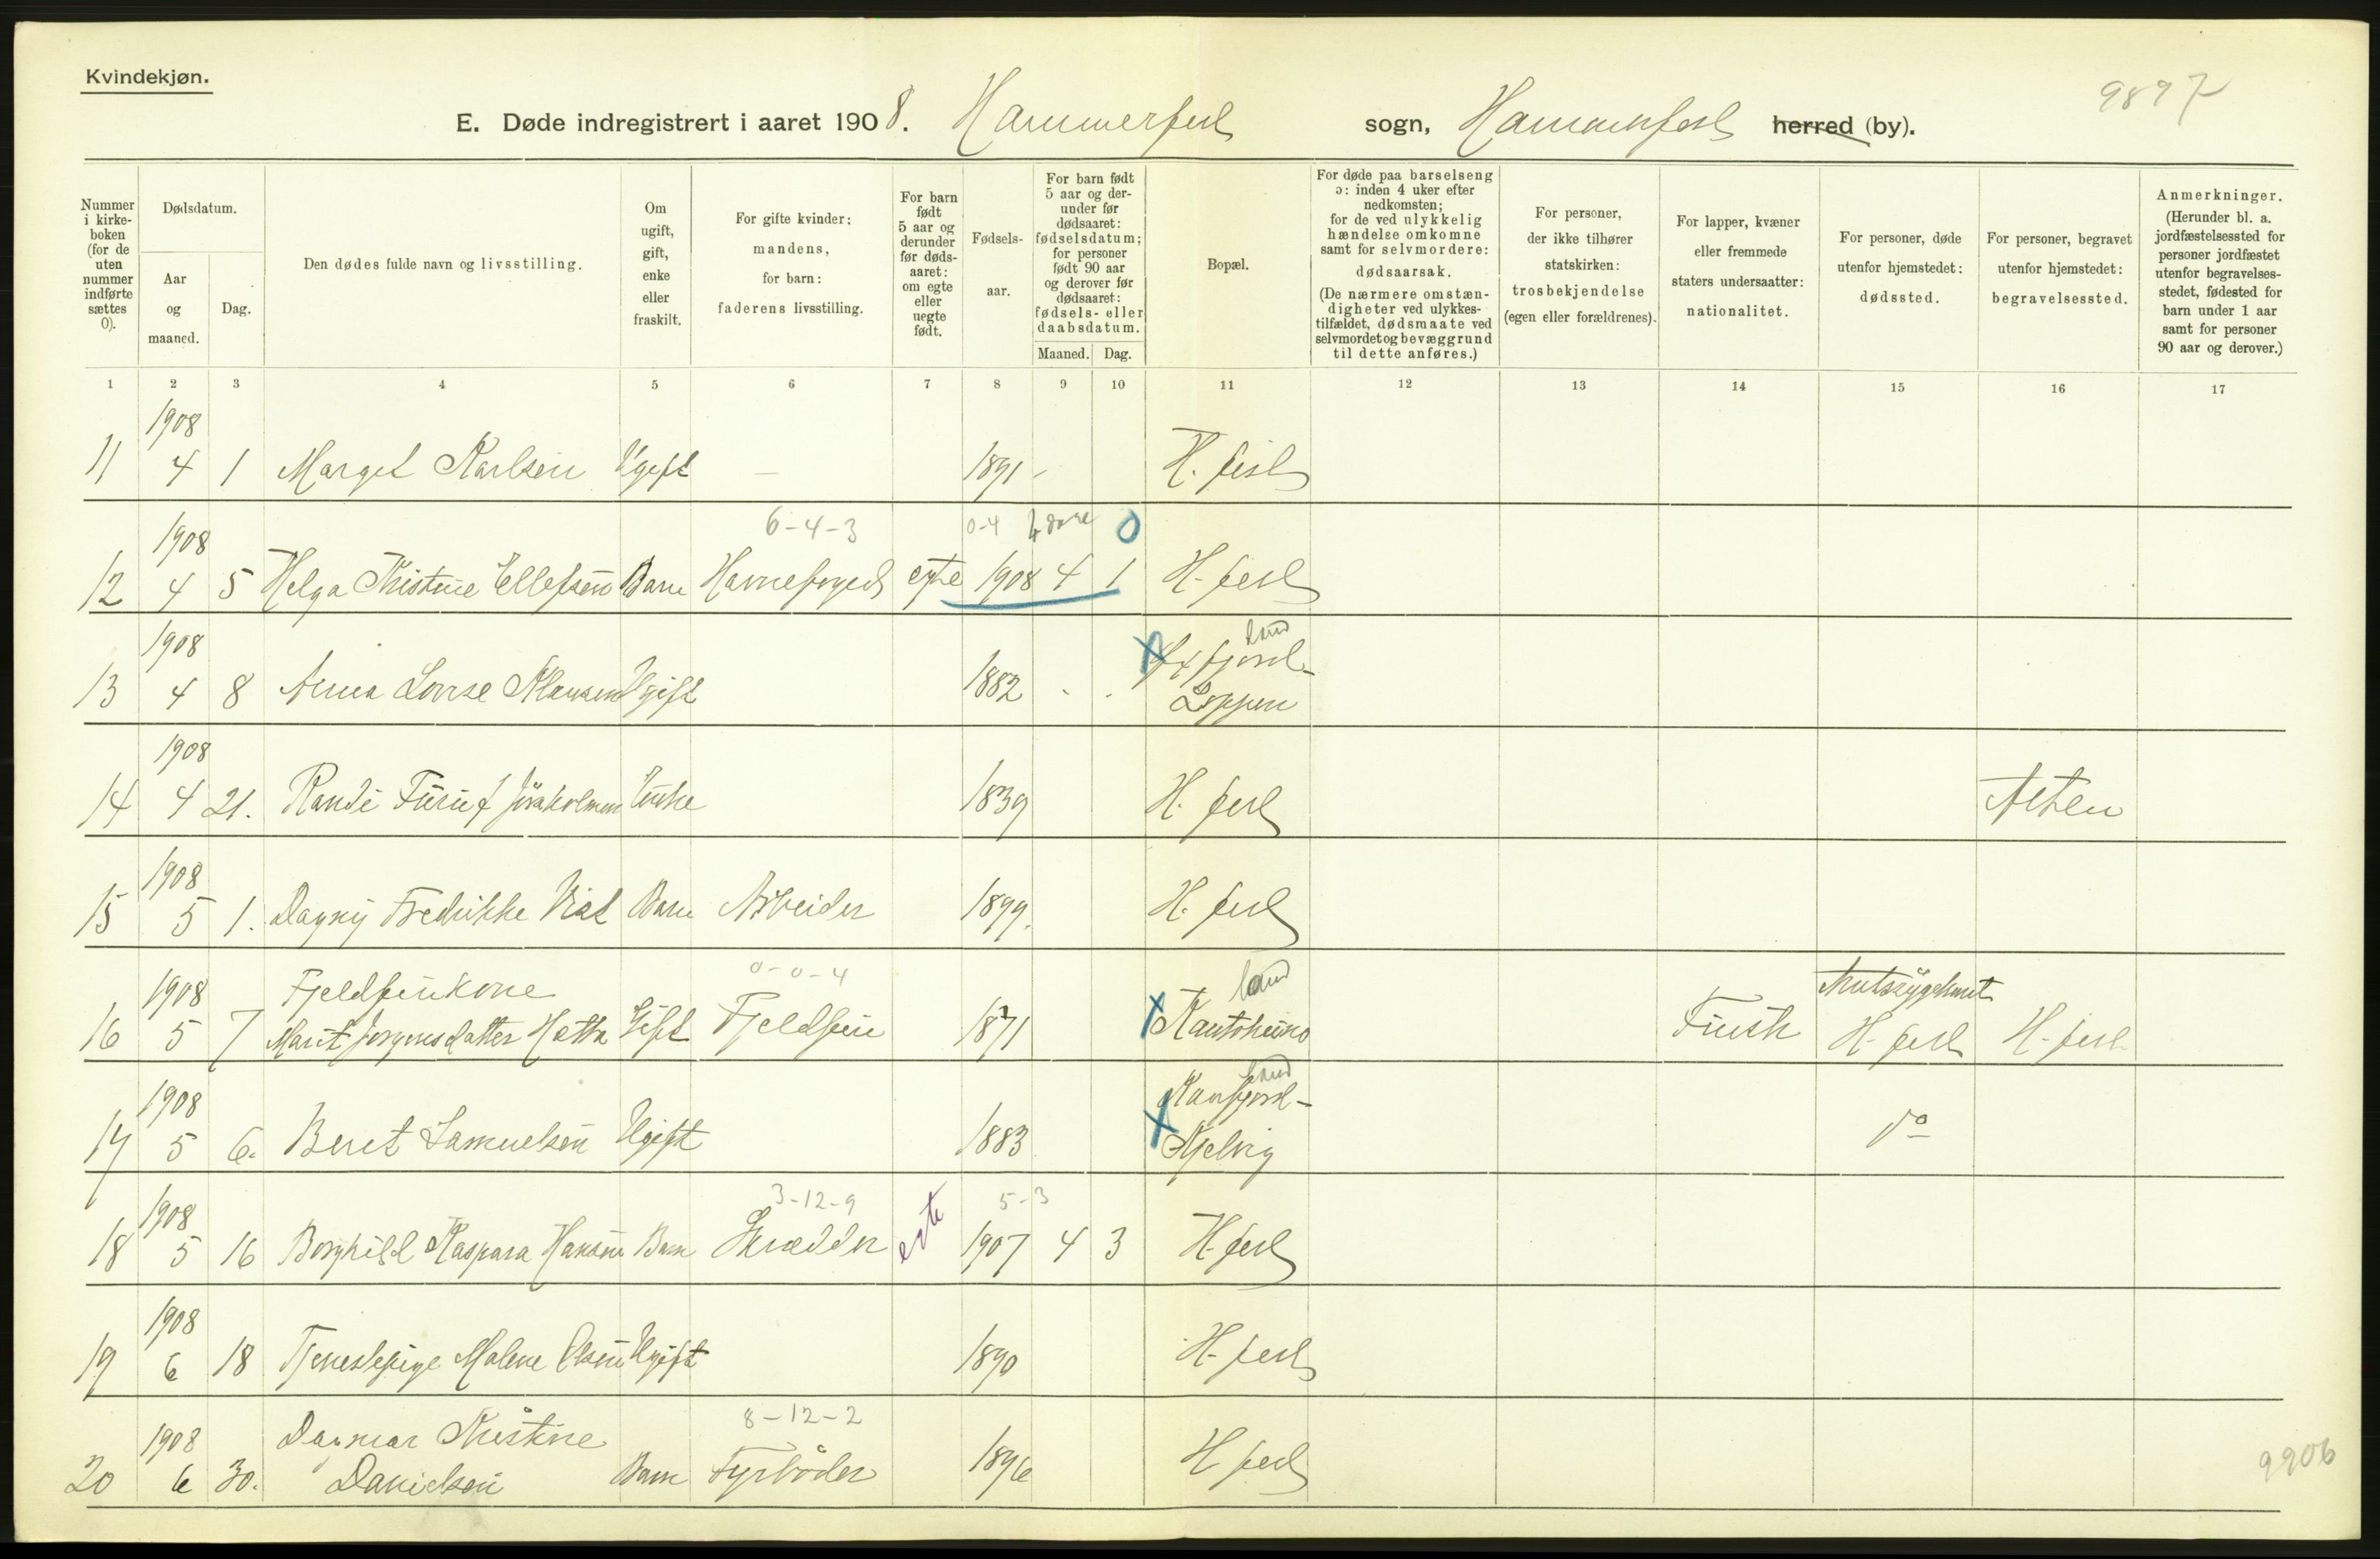 Kvindekjøn.
9897
E. Døde indregistrert i aaret 1908. Hammerfest sogn, Hammerfest herred (by).
Nummer i kirke-boken (for de uten nummer indførte sættes 0).
Dødsdatum.
Aar og maaned.
Dag.
Den dødes fulde navn og livsstilling.
Om ugift, gift, enke eller fraskilt.
For gifte kvinder: mandens, for barn: faderens livsstilling.
For barn født 5 aar og derunder før døds-aaret: om egte eller uegte født.
Fødsels-aar.
For barn født 5 aar og der-under før dødsaaret: fødselsdatum; for personer født 90 aar og derover før dødsaaret: fødsels- eller daabsdatum.
Maaned. Dag.
Bopæl.
For døde paa barselseng ɔ: inden 4 uker efter nedkomsten; for de ved ulykkelig hændelse omkomne samt for selvmordere: dødsaarsak. (De nærmere omstæn-digheter ved ulykkes-tilfældet, dødsmaate ved selvmordet og bevæggrund til dette anføres.)
For personer, der ikke tilhører statskirken: trosbekjendelse (egen eller forældrenes).
For lapper, kvæner eller fremmede staters undersaatter: nationalitet.
For personer, døde utenfor hjemstedet: dødssted.
For personer, begravet utenfor hjemstedet: begravelsessted.
Anmerkninger. (Herunder bl. a. jordfæstelsessted for personer jordfæstet utenfor begravelses-stedet, fødested for barn under 1 aar samt for personer 90 aar og derover.)
1 2 3 4 5 6 7 8 9 10 11 12 13 14 15 16 17
1908
11 4 1 Margit Karlsen Ugift — 1891 - H. fest
6-4-3 0-4 0
1908
12 4 5 Helga Kristine Ellefsen Barn Havnefoged egte 1908 4 1 H. fest
1908 land
13 4 8 Anna Lovise Klausen Ugift 1882 . . fjord - Loppen
1908
14 4 21. Randi Enke 1839 H. fest Alten
1908
15 5 1. Dagny Fredrikke Barn Arbeider 1899. H. fest
0-0-4 land
1908 Fjeldfinkone Amtssygehuset
16 5 7 Marit Jørgensdatter Hætta Gift Fjeldfin 1871 Kautokeino Finsk H. fest H. fest
1908 land
17 5 6. Beret Samuelsen Ugift 1883 - Kjelvig do
3-12-9 5-3
1908
18 5 16 Borghild Kaspara Hansen Barn Skrædder egte 1907 4 3 H. fest
1908
19 6 18 Tjenestepige Malene Olsen Ugift 1890 H. fest
8-12-2
1908 Dagmar Kristine
20 6 30. Danielsen Barn Fyrbøder 1896 H. fest
9906